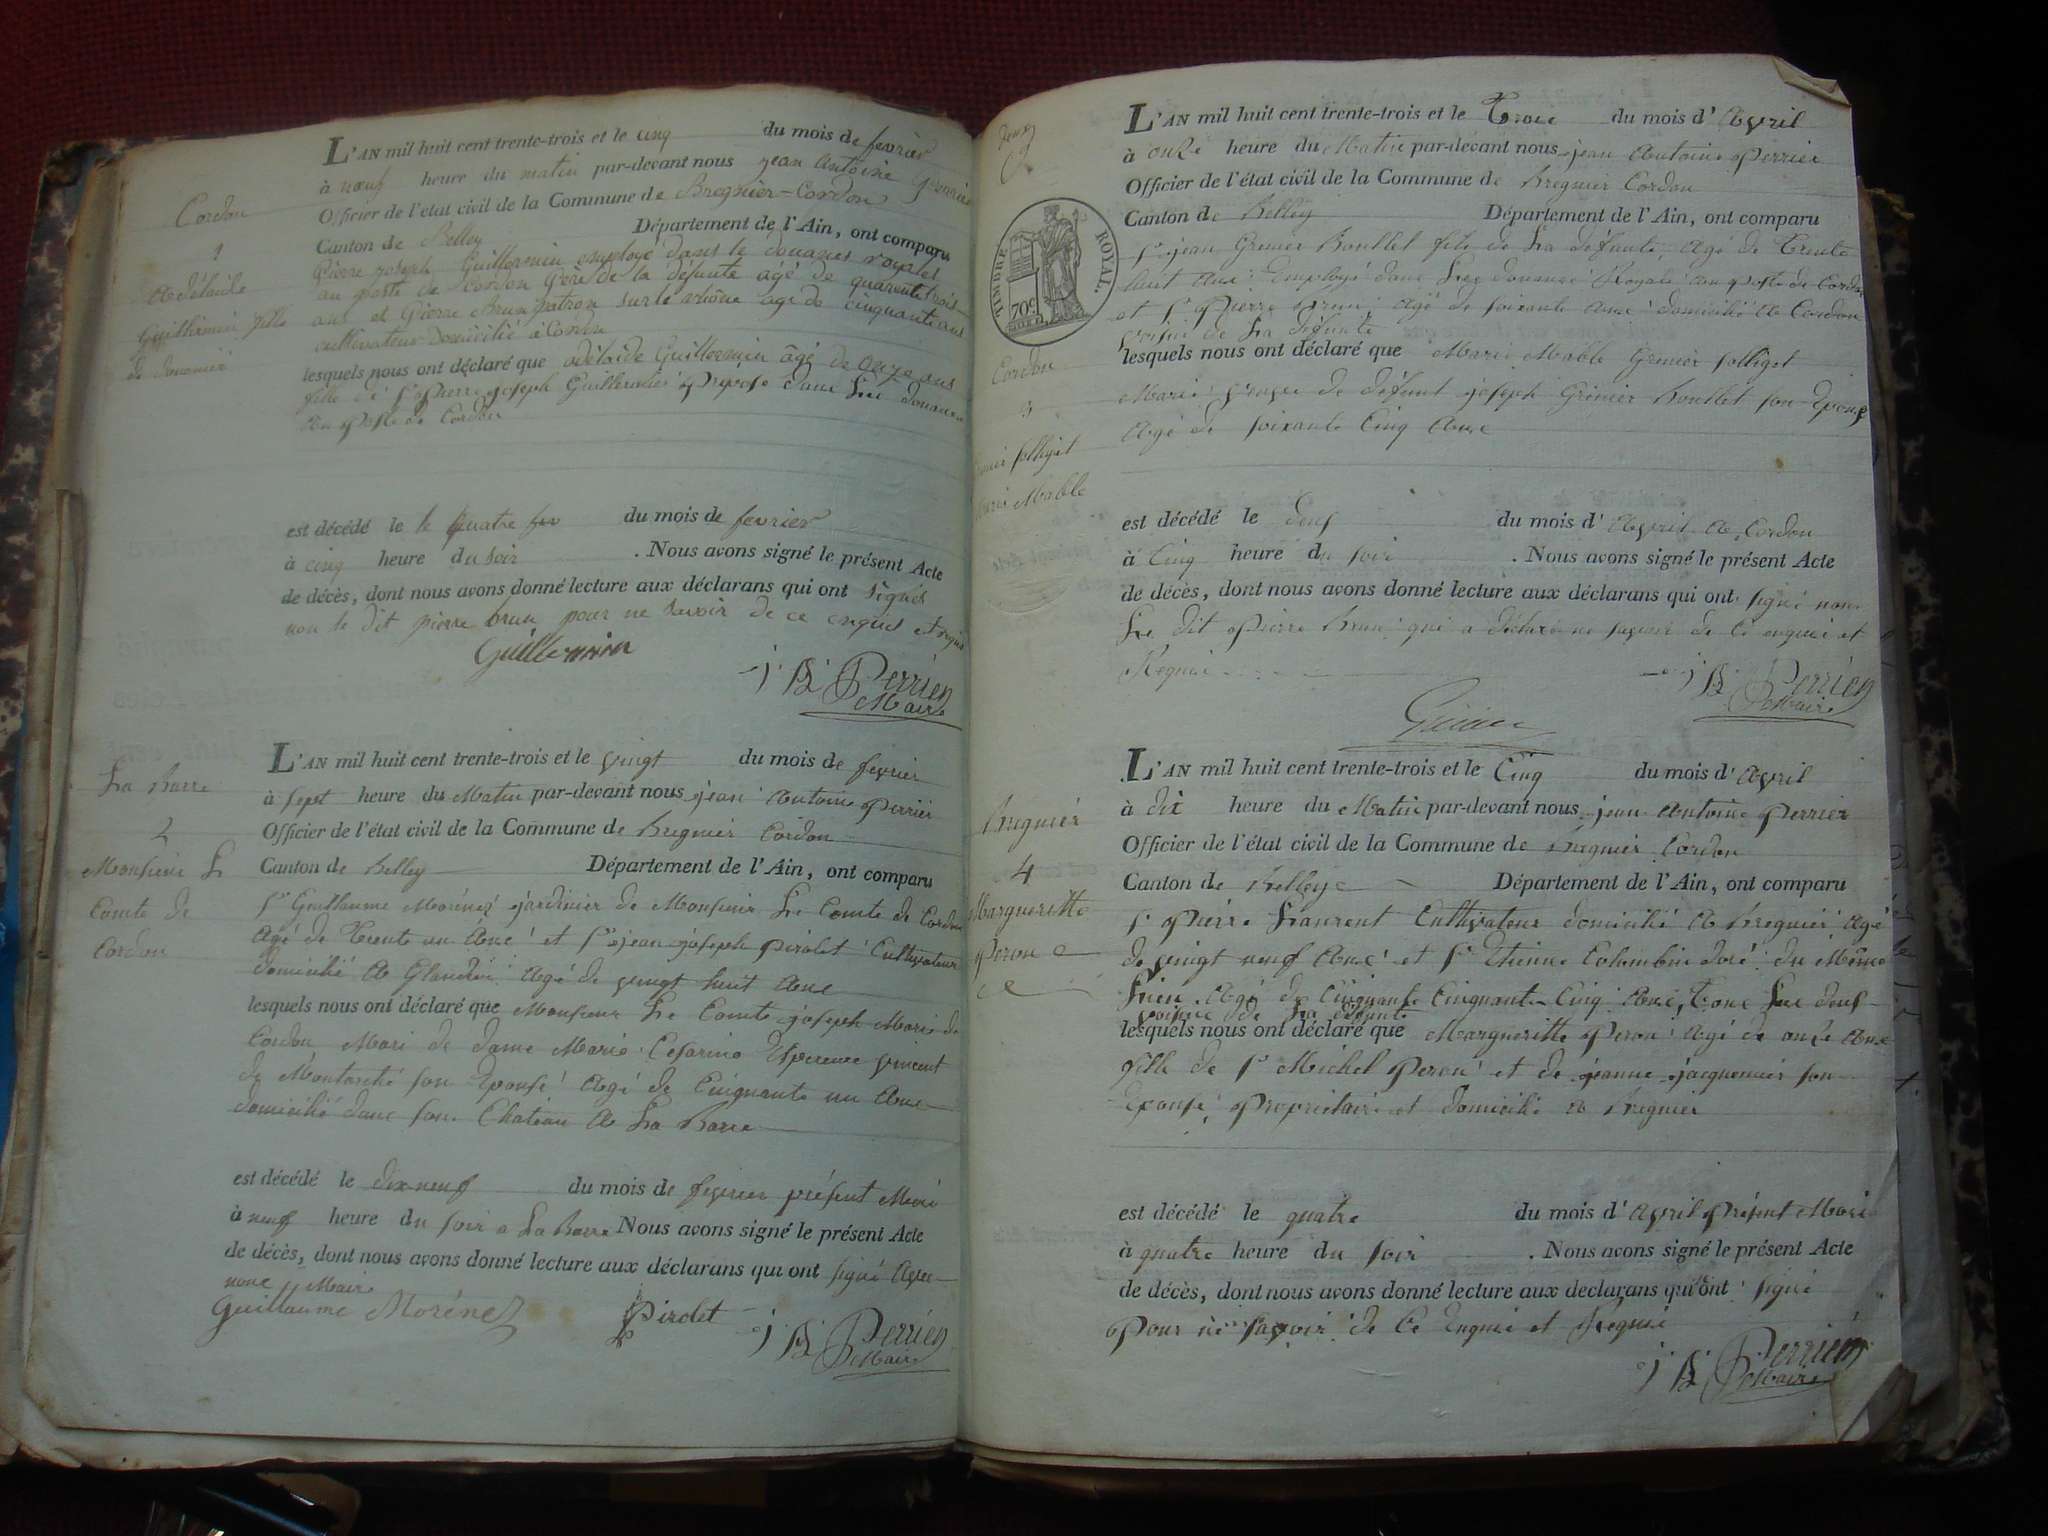 Cordon
1
Adélaide
Guillermin fille
de douanier
L'AN mil huit cent trente-trois et le cinq du mois de fevrier
à neuf heure du matin par-devant nous jean Antoine perrier
Officier de l'etat civil de la Commune de Bregnier-Cordon
Canton de Belley Département de l'Ain, ont comparu
Pierre joseph Guillermin employé dans le douanes royales
au poste de Cordon Père de la défunte agé de quarente trois
ans et Pierre Brun patron sur le rhône age de cinquante ans
cultivateur Domicilié à Cordon
lesquels nous ont déclaré que adelaide Guillermin âgé de onze ans
fille de sr pierre joseph Guillermin préposé dans les douanes
au poste de Cordon
est décédé le le quatre du mois de fevrier
à cinq heure du soir . Nous avons signé le présent Acte
de décès, dont nous avons donné lecture aux déclarans qui ont signés
non le dit pierre brun pour ne savoir de ce enquis et requis
Guillermin
j B Perrier
Maire
La Barre
2
Monsieur Le
Comte de
Cordon
L'AN mil huit cent trente-trois et le vingt du mois de fevrier
à sept heure du Matin par-devant nous jean Antoine perrier
Officier de l'état civil de la Commune de Bregnier Cordon
Canton de Belley Département de l'Ain, ont comparu
sr Guillaume Morénez jardinier de Monsieur Le Comte de Cordon
Agé de Trente un Ans et sr jean joseph pirolet Cultivateur
domicilié a Glandieu Agé de vingt huit Ans
lesquels nous ont déclaré que Monsieur Le Comte joseph Marie de
Cordon Mari de dame Marie Cesarine Esperence vincent
de son Epouse Agé de Cinquante un Ans
domicilié dans son Chateau A La Barre
est décédé le dix neuf du mois de fevrier présent Mois
à neuf heure du soir a La Barre Nous avons signé le présent Acte
de décès, dont nous avons donné lecture aux déclarans qui ont signé Avec
nous Maire
Guillaume Morénez Pirolet j B Perrier
Maire
TIMBRE ROYAL.
70c
Cordon
3
Grenier folliget
Marie Mable
L'AN mil huit cent trente-trois et le Trois du mois d'Avril
à onze heure du Matin par-devant nous jean Antoine perrier
Officier de l'état civil de la Commune de Bregnier Cordon
Canton de Belley Département de l'Ain, ont comparu
sr jean Grenier Boullet fils de La défunte, Agé de Trente
huit Ans Employé dans Les douanes Royale au poste de Cordon
et sr Pierre Brun Agé de soixante Ans domicilié A Cordon
voisin de La défunte
lesquels nous ont déclaré que Marie Mable Grenier folliget
Marie veuve de défunt joseph Grenier Boullet son Epoux
Agé de soixante Cinq Ans
est décédé le deux du mois d'Avril A Cordon
à Cinq heure du soir . Nous avons signé le présent Acte
de décès, dont nous avons donné lecture aux déclarans qui ont signé non
Le dit Pierre Brun qui a déclaré ne savoir de ce enquis et
Requis
j B Perrier
Maire
Grenier
Bregnier
4
Margueritte
Peron
L'AN mil huit cent trente-trois et le Cinq du mois d'Avril
à dix heure du Matin par-devant nous jean Antoine perrier
Officier de l'état civil de la Commune de Bregnier Cordon
Canton de Belley Département de l'Ain, ont comparu
sr Pierre Laurent Cultivateur domicilié A Bregnier Agé
de vingt neuf Ans et sr Etienne Colombin doré du Même
Lieu Agé de Cinquante Cinquante Cinq Ans, Tous Les deux
voisins de La défunte
lesquels nous ont déclaré que Margueritte Peron Agé de onze Ans
fille de sr Michel Peron et de jeanne jacquemier son
Epouse, Propriétaire et domicilié A Bregnier
est décédé le quatre du mois d'Avril Présent Mois
à quatre heure du soir . Nous avons signé le présent Acte
de décès, dont nous avons donné lecture aux declarans qui ont signé
Pour ne savoir de Ce Enquis et Requis
j B Perrier
Maire